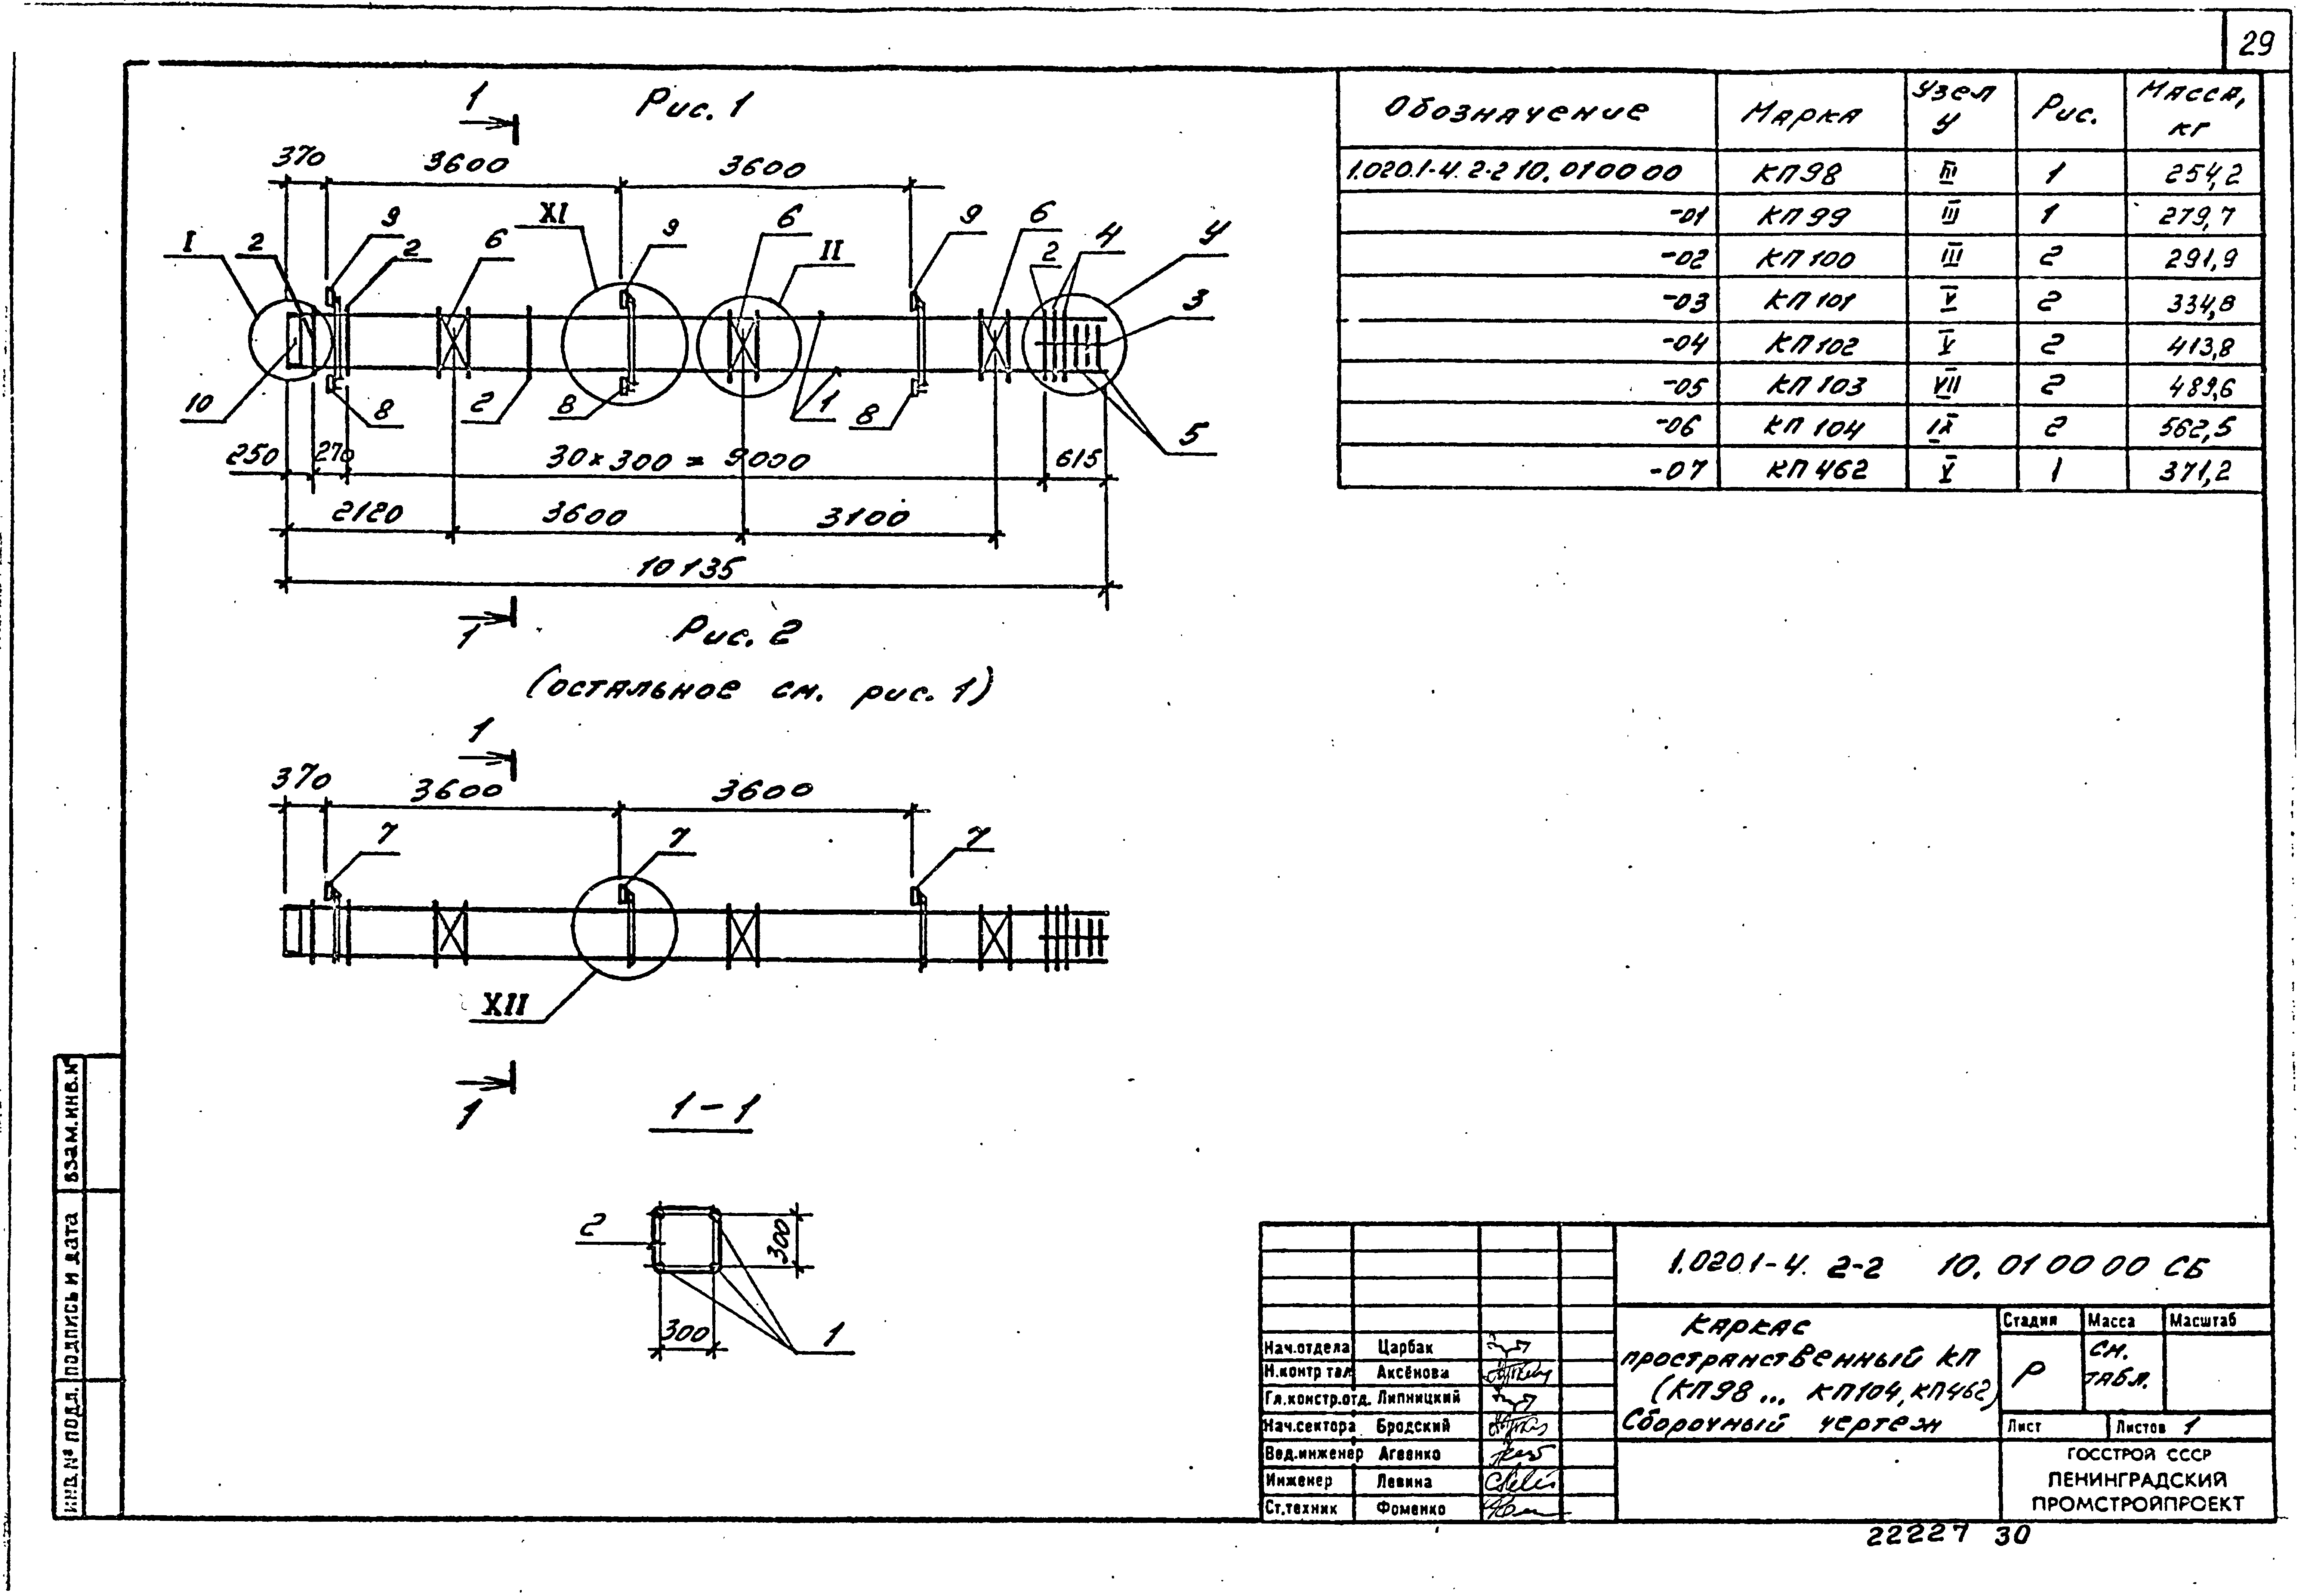 29
Рис. 1
1
370
3600
3600
I
2
9
2
6
XI
9
6
II
9
6
2
4
У
3
10
8
2
8
1
8
5
250
270
30×300=9000
615
2120
3600
3100
10135
1
Рис. 2
(остальное см. рис. 1)
1
370
3600
3600
7
7
7
XII
1
1-1
2
300
300
1
Обозначение Марка Узел У Рис. Масса, кг
1.020.1-4.2-2 10.010000 КП98 III 1 254,2
-01 КП99 III 1 279,7
-02 КП100 III 2 291,9
-03 КП101 V 2 334,8
-04 КП102 V 2 413,8
-05 КП103 VII 2 489,6
-06 КП104 IX 2 562,5
-07 КП462 V 1 371,2
1.020.1-4. 2-2 10.010000 СБ
Каркас
пространственный КП
(КП98... КП104, КП462)
Сборочный чертеж
Стадия Масса Масштаб
Р см. табл.
Лист Листов 1
ГОССТРОЙ СССР
ЛЕНИНГРАДСКИЙ
ПРОМСТРОЙПРОЕКТ
Нач.отдела Царбак
Н.контр тал Аксёнова
Гл.констр.отд. Липницкий
Нач.сектора Бродский
Вед.инженер Агеенко
Инженер Левина
Ст.техник Фоменко
ИНВ.№ ПОДЛ. ПОДПИСЬ И ДАТА ВЗАМ.ИНВ.№
22227 30